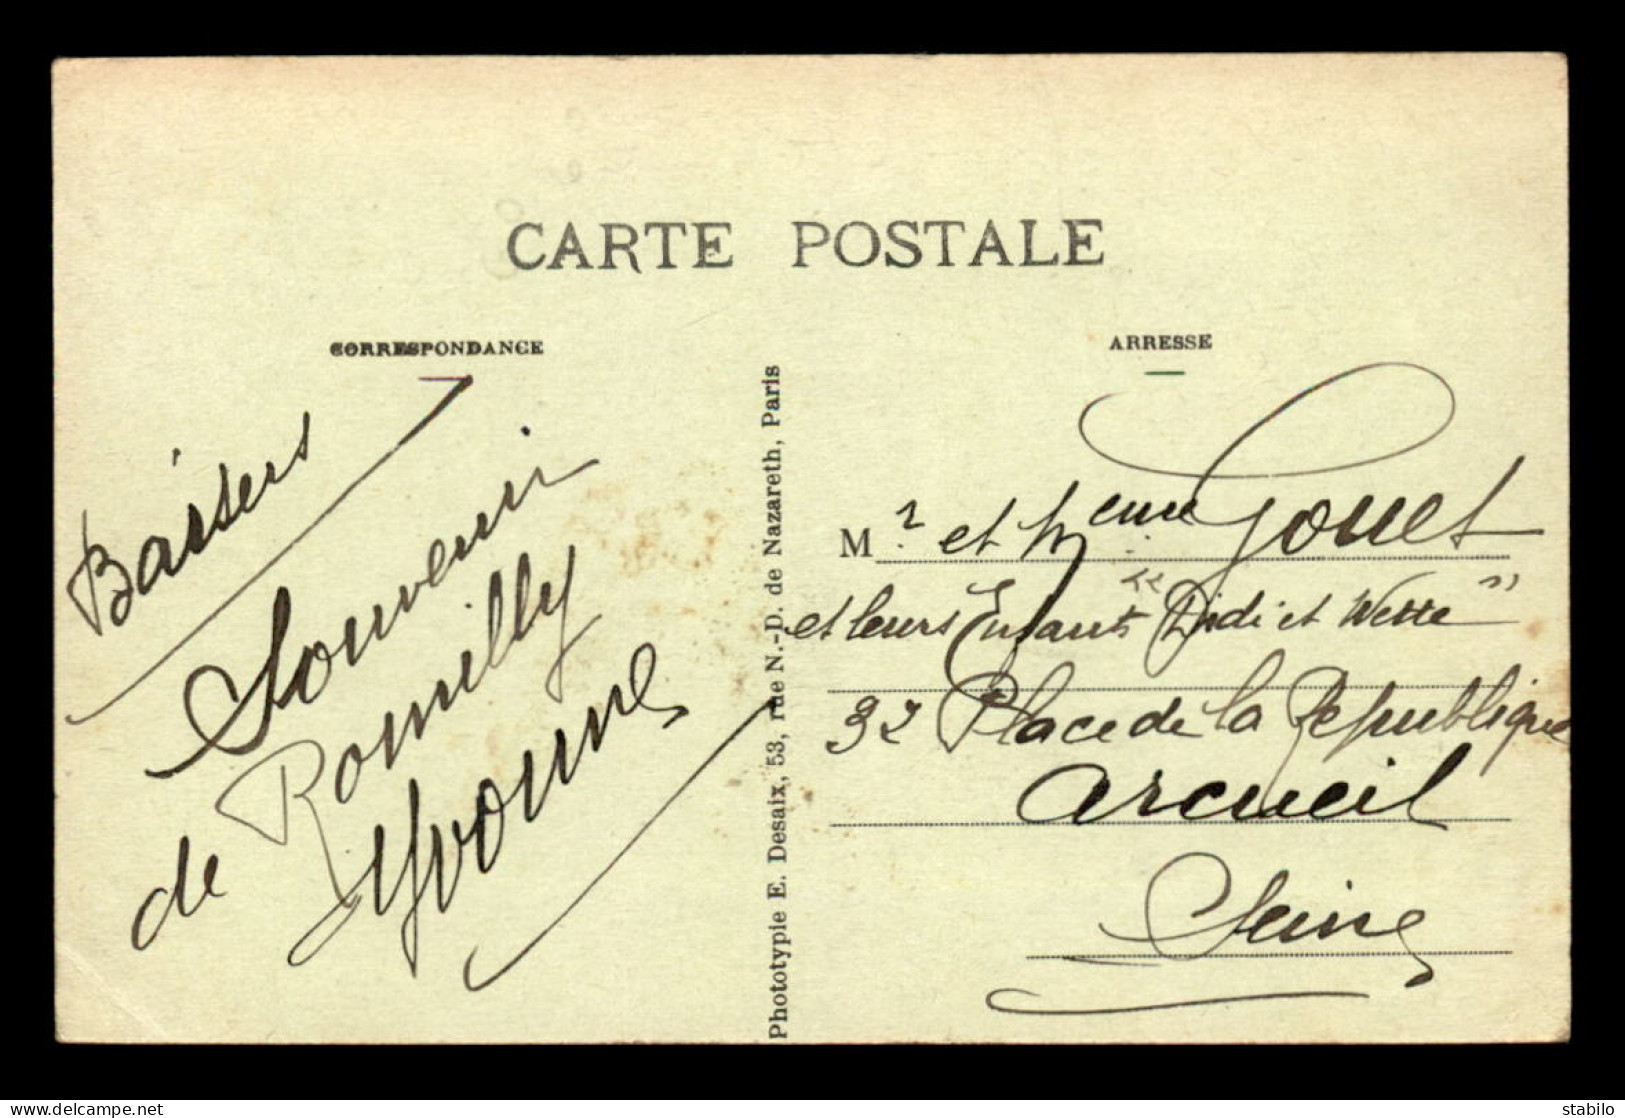 CARTE POSTALE
CORRESPONDANCE
Baisers
Souvenir
de Romilly
Yvonne
Phototypie E. Desaix, 53, rue N.-D. de Nazareth, Paris
ARRESSE
M r et Meme Gouet
et leurs Enfants "Didi et Wette"
32 Place de la République
Arcueil
Seine
delcampe.net
stabilo